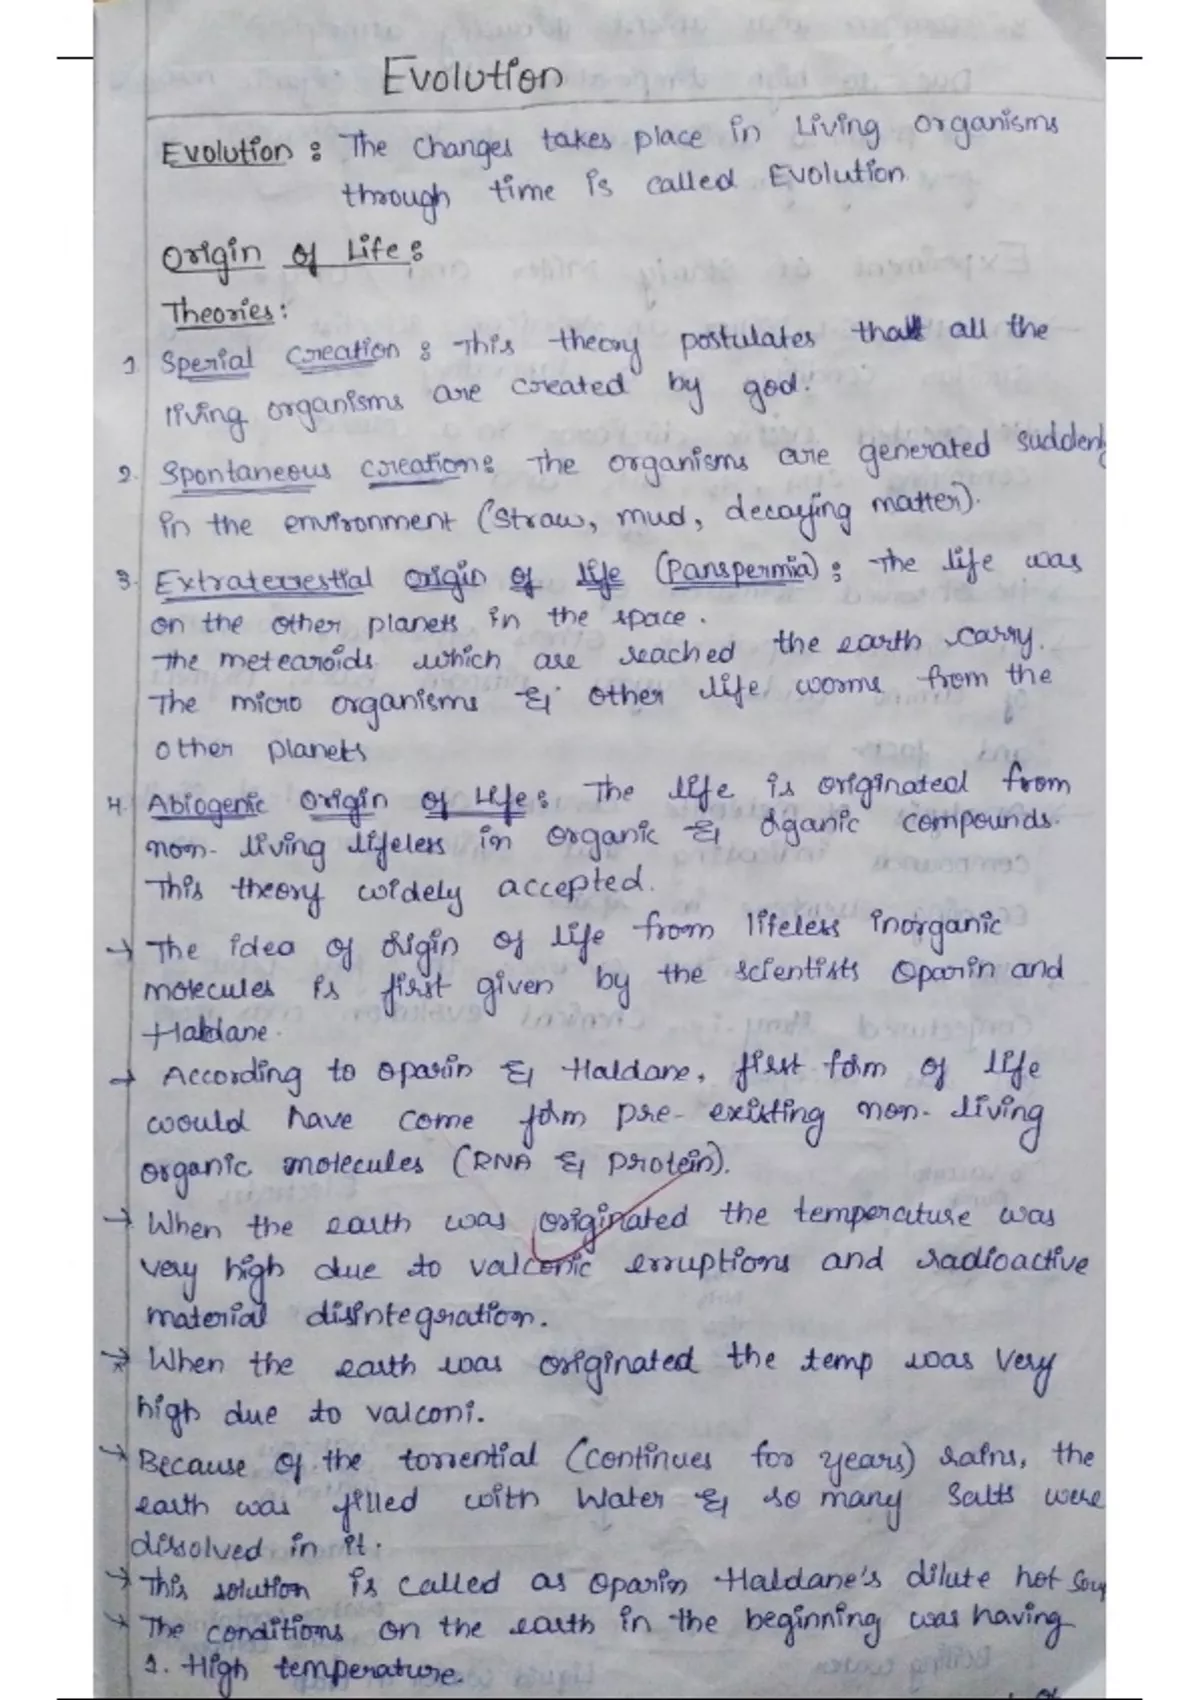 Evolution
Evolution : The changes takes place in Living organisms
through time is called Evolution.
Origin of Life :
Theories :
1. Sperial creation : This theory postulates that all the
living organisms are created by god.
2. Spontaneous creation : The organisms are generated suddenly
in the environment (straw, mud, decaying matter).
3. Extraterrestial origin of life (Panspermia) : The life was
on the other planets in the space.
The metearoids which are reached the earth carry.
The micro organisms & other life worms from the
other planets
4. Abiogenic origin of Life : The life is originated from
non-living lifeless in organic & organic compounds.
This theory widely accepted.
→ The idea of origin of life from lifeless inorganic
molecules is first given by the scientists Oparin and
Haldane.
→ According to oparin & Haldane, first form of life
would have come form pre-existing non-living
organic molecules (RNA & protein).
→ When the earth was originated the temperature was
very high due to valconic erruptions and radioactive
material disintegration.
→ When the earth was originated the temp was very
high due to valconi.
→ Because of the torrential (continues for years) rains, the
earth was filled with water & so many salts were
dissolved in it.
→ This solution is called as oparin Haldane's dilute hot soup
→ The conditions on the earth in the beginning was having
1. High temperature.